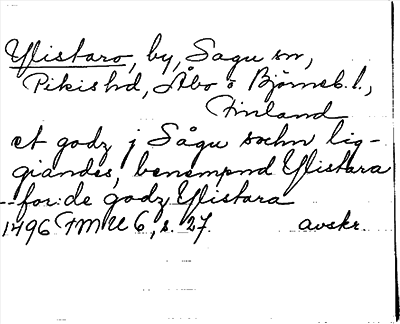 Ylistaro, by, Sagu sn,
Pikis hd, Åbo o Björneb. l.,
Finland
et godz j Sågu sochn lig-
giandes, benempnd Ylistara
for:de godz Ylistara
1496 FMU 6, s. 27. avskr.